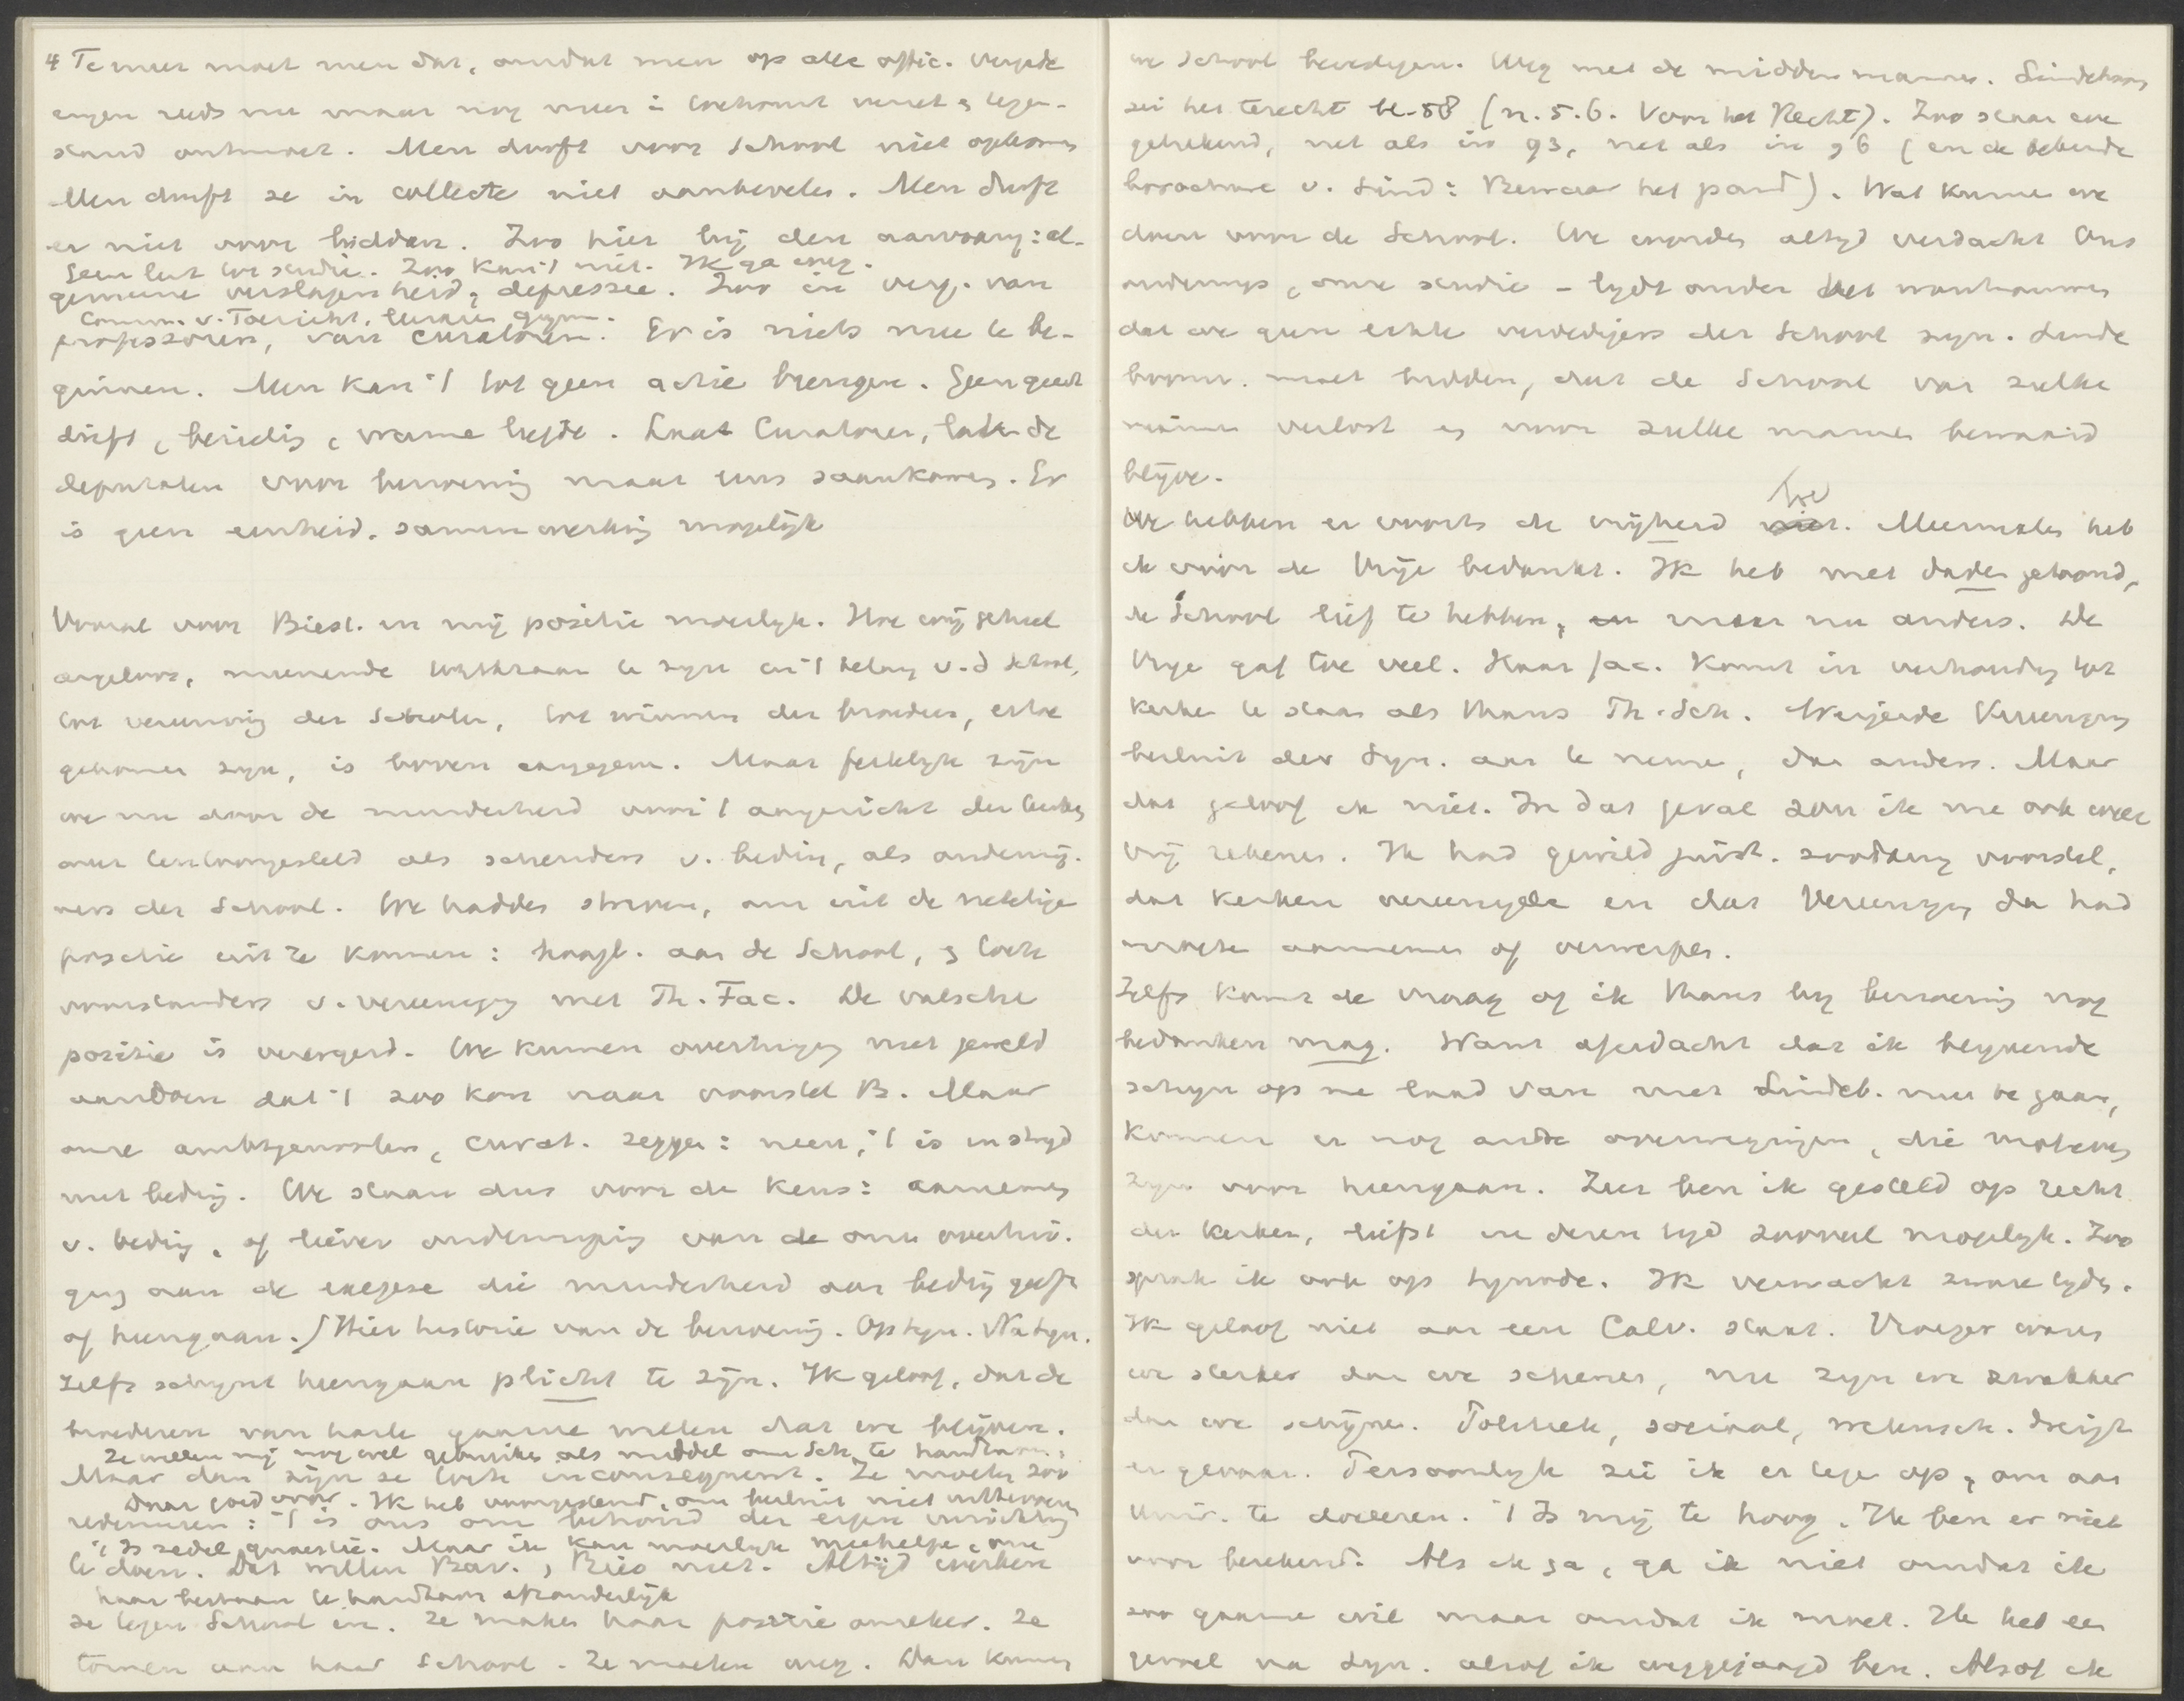 4 Te meer moet men dat, omdat men op alle offic. vergade
ringen reeds nu maar nog meer in toekomst verzet & tegen-
stand ontmoet. Men durft voor School niet opkomen
Men durft ze in collecte niet aanbevelen. Men durft
er niet voor bidden. Zoo hier bij den aanvang: al-
Geen lust tot studie. Zoo kan 't niet. Ik ga weg.
gemeene verslagenheid, depressie. Zoo in verg. van
Comm. v. Toezicht, leeraren gymn.
professoren, van curatoren. Er is niets mee te be-
ginnen. Men kan 't tot geen actie brengen. Geen geest
drift, bezieling, warme liefde. Laat Curatoren, laten de
deputaten voor benoeming maar eens saamkomen. Er
is geen eenheid, samenwerking mogelijk
Vooral voor Biest. en mij positie moeilijk. Hoe wij geheel
argeloos, meenende werkzaam te zijn in 't belang v. d School,
tot vereeniging der Scholen, tot winnen der broeders, ertoe
gekomen zijn, is boven aangegeven. Maar feitelijk zijn
we nu door de minderheid voor 't aangezicht der kerken
ons tentoongesteld als schenders v. beding, als ondermij-
ners der School. We hadden streven, om uit de netelige
positie uit te komen: hoogl. aan de School, & toch
voorstanders v. vereeniging met Th. Fac. De valsche
positie is verergerd. We kunnen overtuiging niet geweld
aandoen dat 't zoo kon naar voorstel B. Maar
onze ambtgenooten, curat. zeggen: neen, 't is in strijd
met beding. We staan dus voor de keus: aannemen
v. beding, of liever onderwerping van de onze overtui-
ging aan de exegese die minderheid aan beding geeft
of heengaan. / Hier historie van de benoeming. Op syn. Na syn.
Zelfs schijnt heengaan plicht te zijn. Ik geloof, dat de
broederen van harte gaarne willen dat we blijven.
Ze willen mij nog wel gebruiken als middel om Sch. te handhaven.
Maar dan zijn ze toch inconsequent. Ze moeten zoo
Daar goed voor. Ik heb voorgestemd, om besluit niet uittevoeren
redeneeren: 't is ons om behoud der eigen inrichting
't Is zedel. quaestie. Maar ik kan moeilijk meehelpen om
te doen. Dat willen Bav. & Bies niet. Altijd werken
haar bestaan te handhaven afzonderlijk
ze tegen School in. Ze maken haar positie onzeker. Ze
tornen aan haar School. Ze moeten weg. Dan kunnen
we School bevestigen. Weg met de middenmannen. Lindeboom
zei het terecht bl. 58 (n. 5. 6. Voor het Recht). Zoo staan we
geteekend, net als in 93, net als in 96 (en de bekende
brochure v. Lind: Bewaar het pand). Wat kunnen we
doen voor de School. We worden altijd verdacht Ons
onderwijs, onze studie – lijdt onder het wantrouwen
dat we geen echte verdedigers der School zijn. Linde
boom. moet bidden, dat de School van zulke
mannen verlost en voor zulke mannen bewaard
blijve.
toe
We hebben er voorts de vrijheid niet. Meermalen heb
ik voor de Vrije bedankt. Ik heb met daden getoond,
de School lief te hebben, en maar nu anders. De
Vrije gaf toe veel. Haar fac. komt in verhouding tot
kerken te staan als thans Th. Sch. Weigerde Vereeniging
besluit der Syn. aan te nemen, dan anders. Maar
dat geloof ik niet. In dat geval zou ik me ook weer
vrij rekenen. Ik had gewild juist zoodanig voorstel,
dat kerken vereenigde en dat Vereeniging dan had
moeten aannemen of verwerpen.
Zelfs komt de vraag of ik thans bij benoeming nog
bedanken mag. Want afgedacht dat ik blijvende
schijn op me laad van met Lindeb. mee te gaan,
komen er nog andere overwegingen, die motieven
zijn voor heengaan. Zeer ben ik gesteld op recht
der kerken, liefst in deren tijd zooveel mogelijk. Zoo
sprak ik ook op synode. Ik verwacht zware tijden.
Ik geloof niet aan een Calv. staat. Vroeger waren
we sterker dan we schenen, nu zijn we zwakker
dan we schijnen. Politiek, sociaal, wetensch. dreigt
er gevaar. Persoonlijk zie ik er tegen op, om aan
Univ. te doceeren. 't Is mij te hoog. Ik ben er niet
voor berekend. Als ik ga, ga ik niet omdat ik
zoo gaarne wil maar omdat ik moet. Ik heb een
gevoel na syn. alsof ik weggejaagd ben. Alsof ik